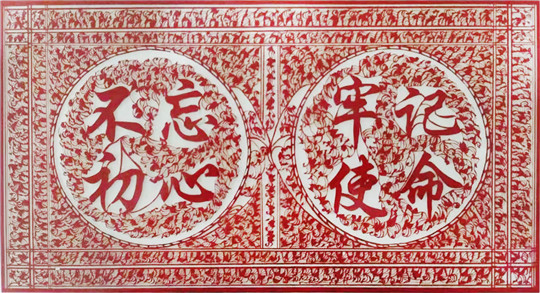 不忘
初心
牢记
使命